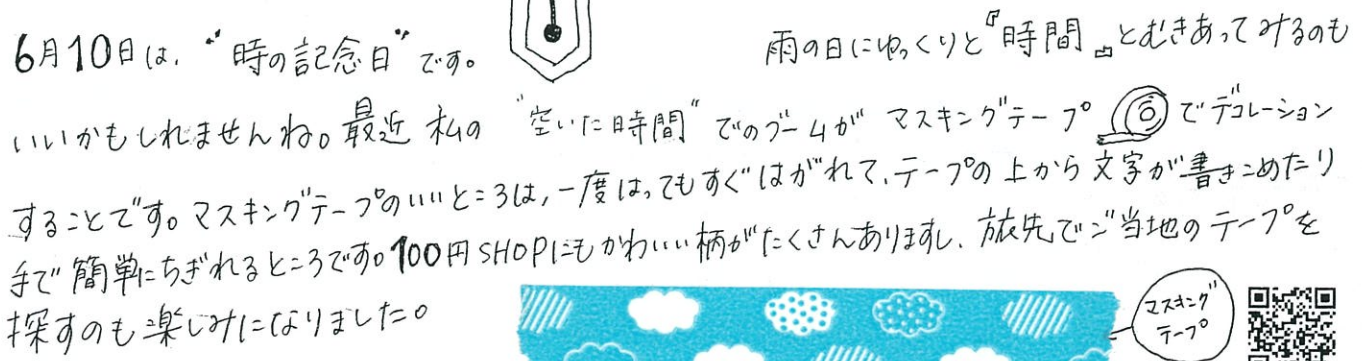 6月10日は、“時の記念日”です。 雨の日にゆっくりと『時間』とむきあってみるのも
いいかもしれませんね。最近 私の “空いた時間” でのブームが マスキングテープ でデコレーション
することです。マスキングテープのいいところは、一度はってもすぐはがれて、テープの上から文字が書きこめたり
手で簡単にちぎれるところです。100円SHOPにもかわいい柄がたくさんありますし、旅先でご当地のテープを
探すのも楽しみになりました。
マスキング
テープ